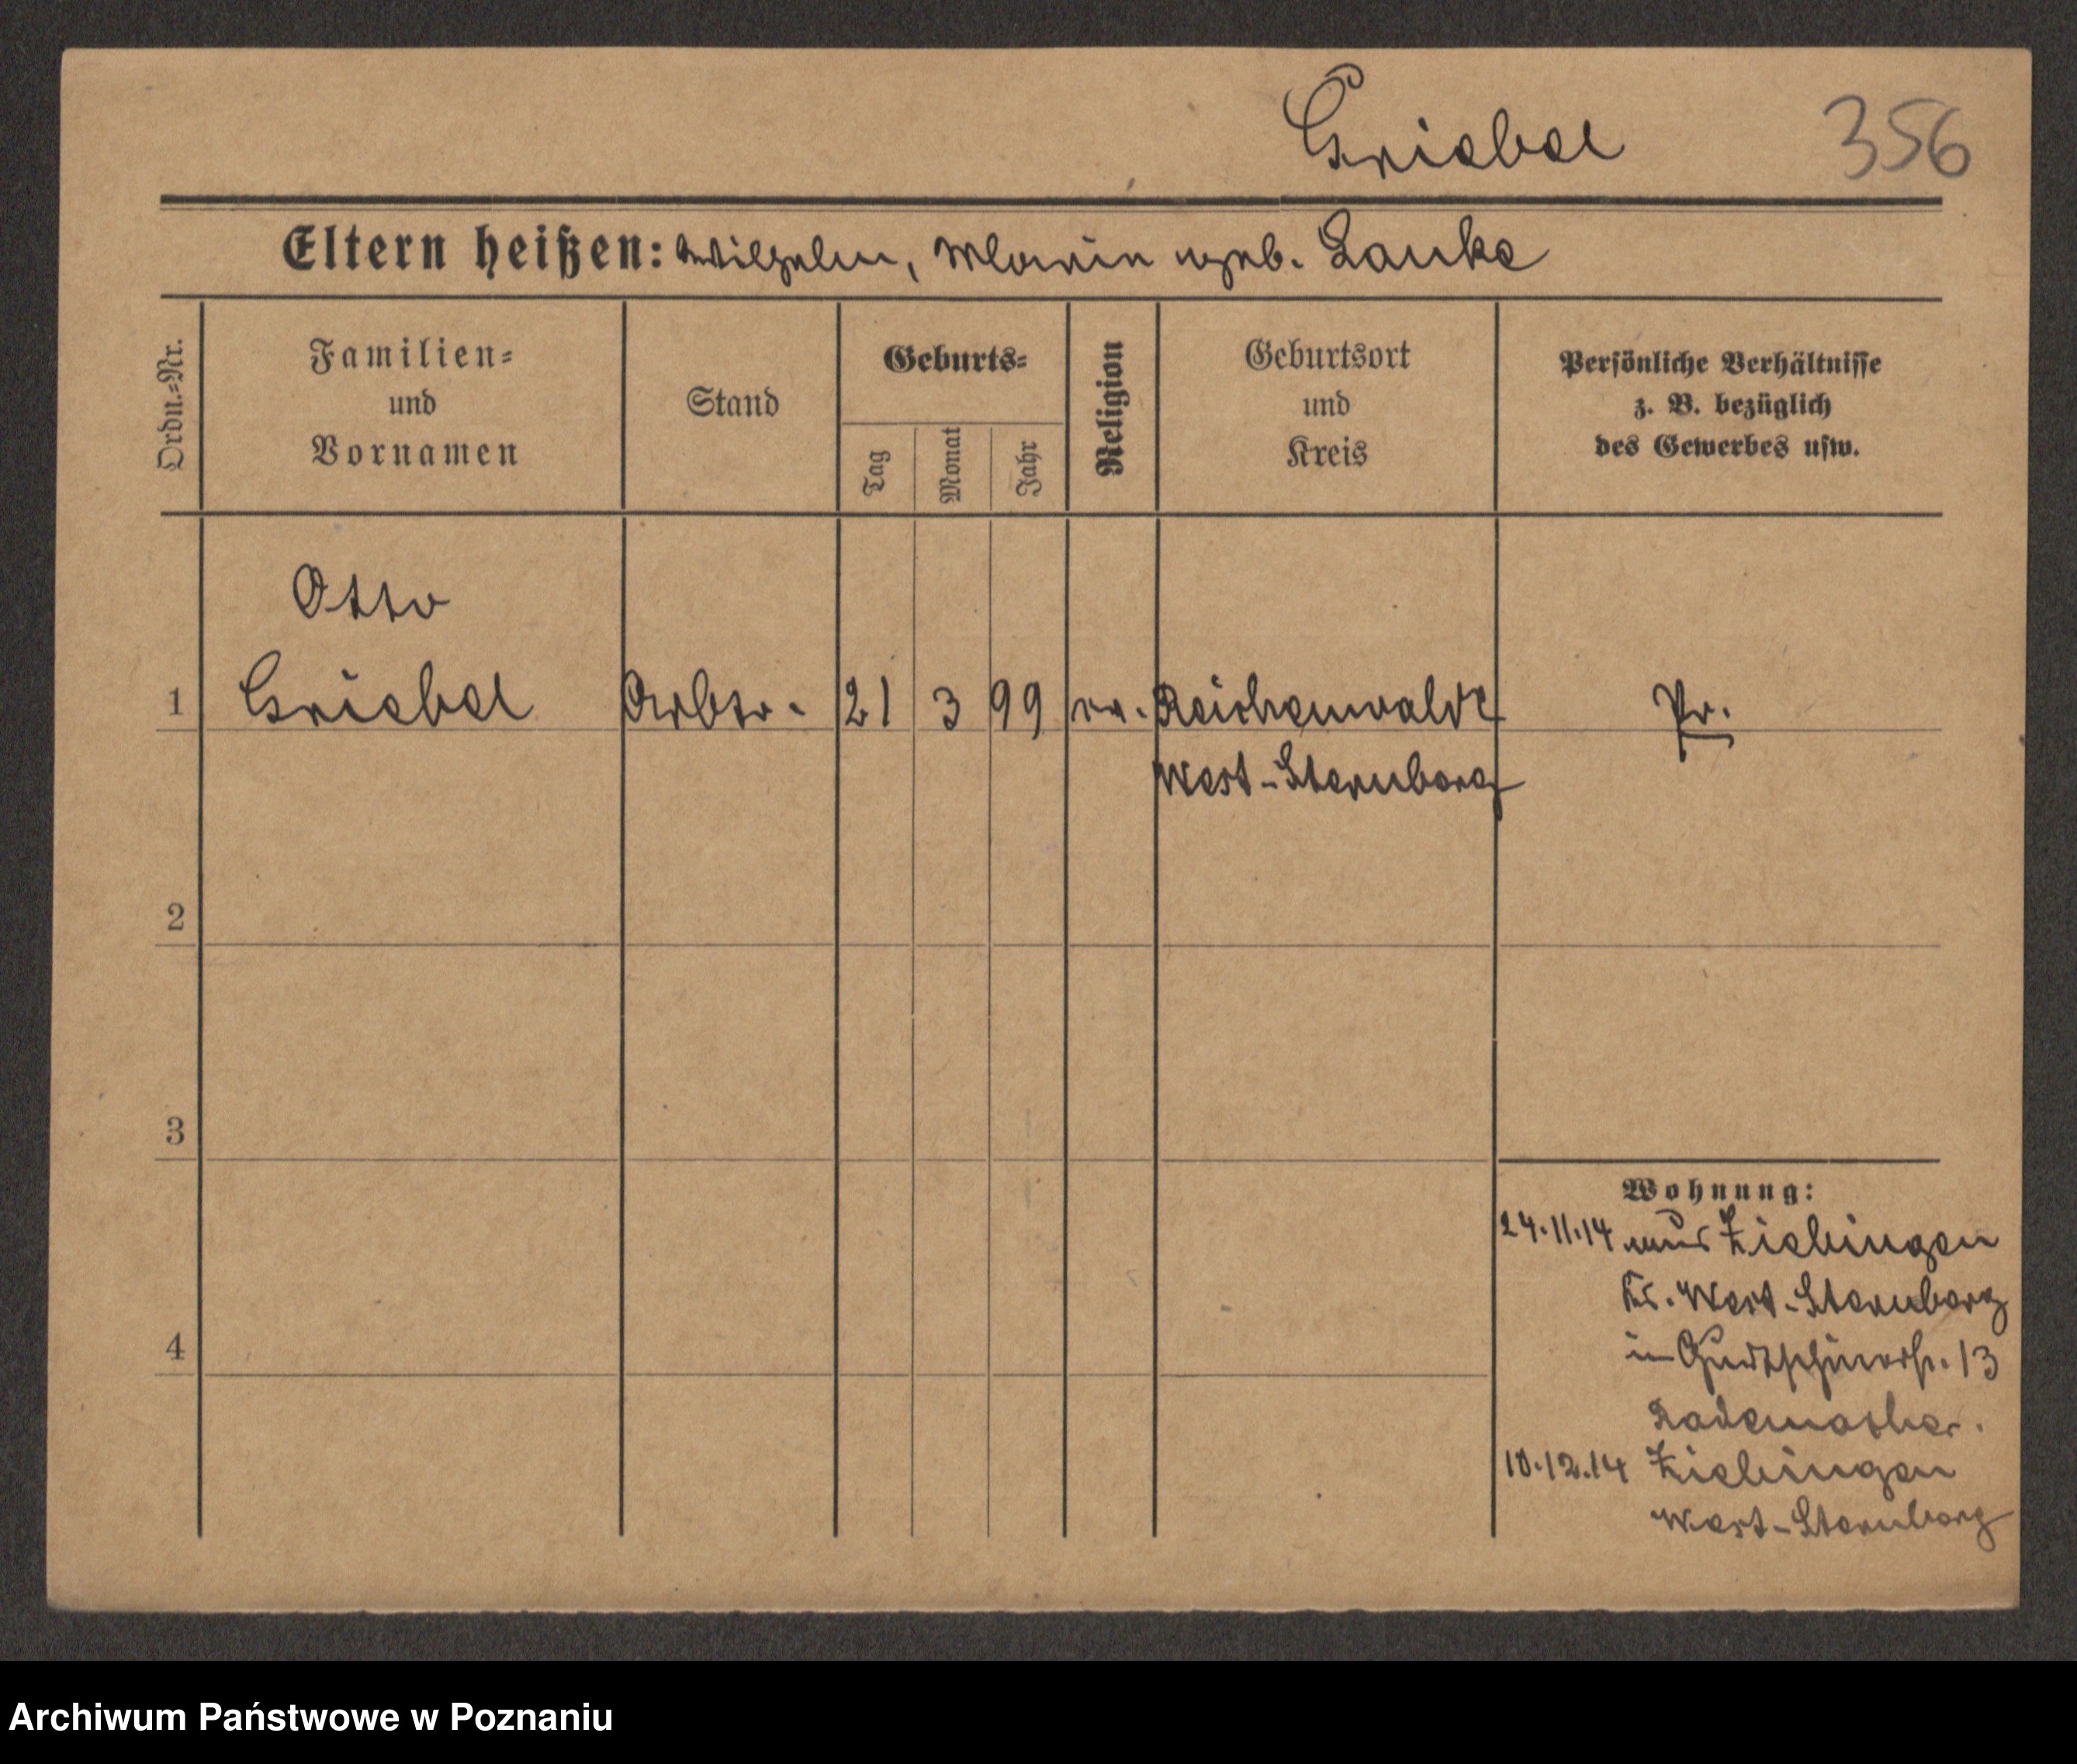 Griebel 356
Eltern heißen: Wilhelm, Marie geb. Lanke
Ordn.=Nr.
Familien=
und
Vornamen
Stand
Geburts=
Tag
Monat
Jahr
Religion
Geburtsort
und
Kreis
Persönliche Verhältnisse
z. B. bezüglich
des Gewerbes usw.
Otto
1 Griebel Arbtr. 21 3 99 ev. Reichenwalde Pr.
West-Sternberg
2
3
4
Wohnung:
24.11.14 aus Ziebingen
Kr. West-Sternberg
in 13
Rademacher.
10.12.14 Ziebingen
West-Sternberg
Archiwum Państwowe w Poznaniu